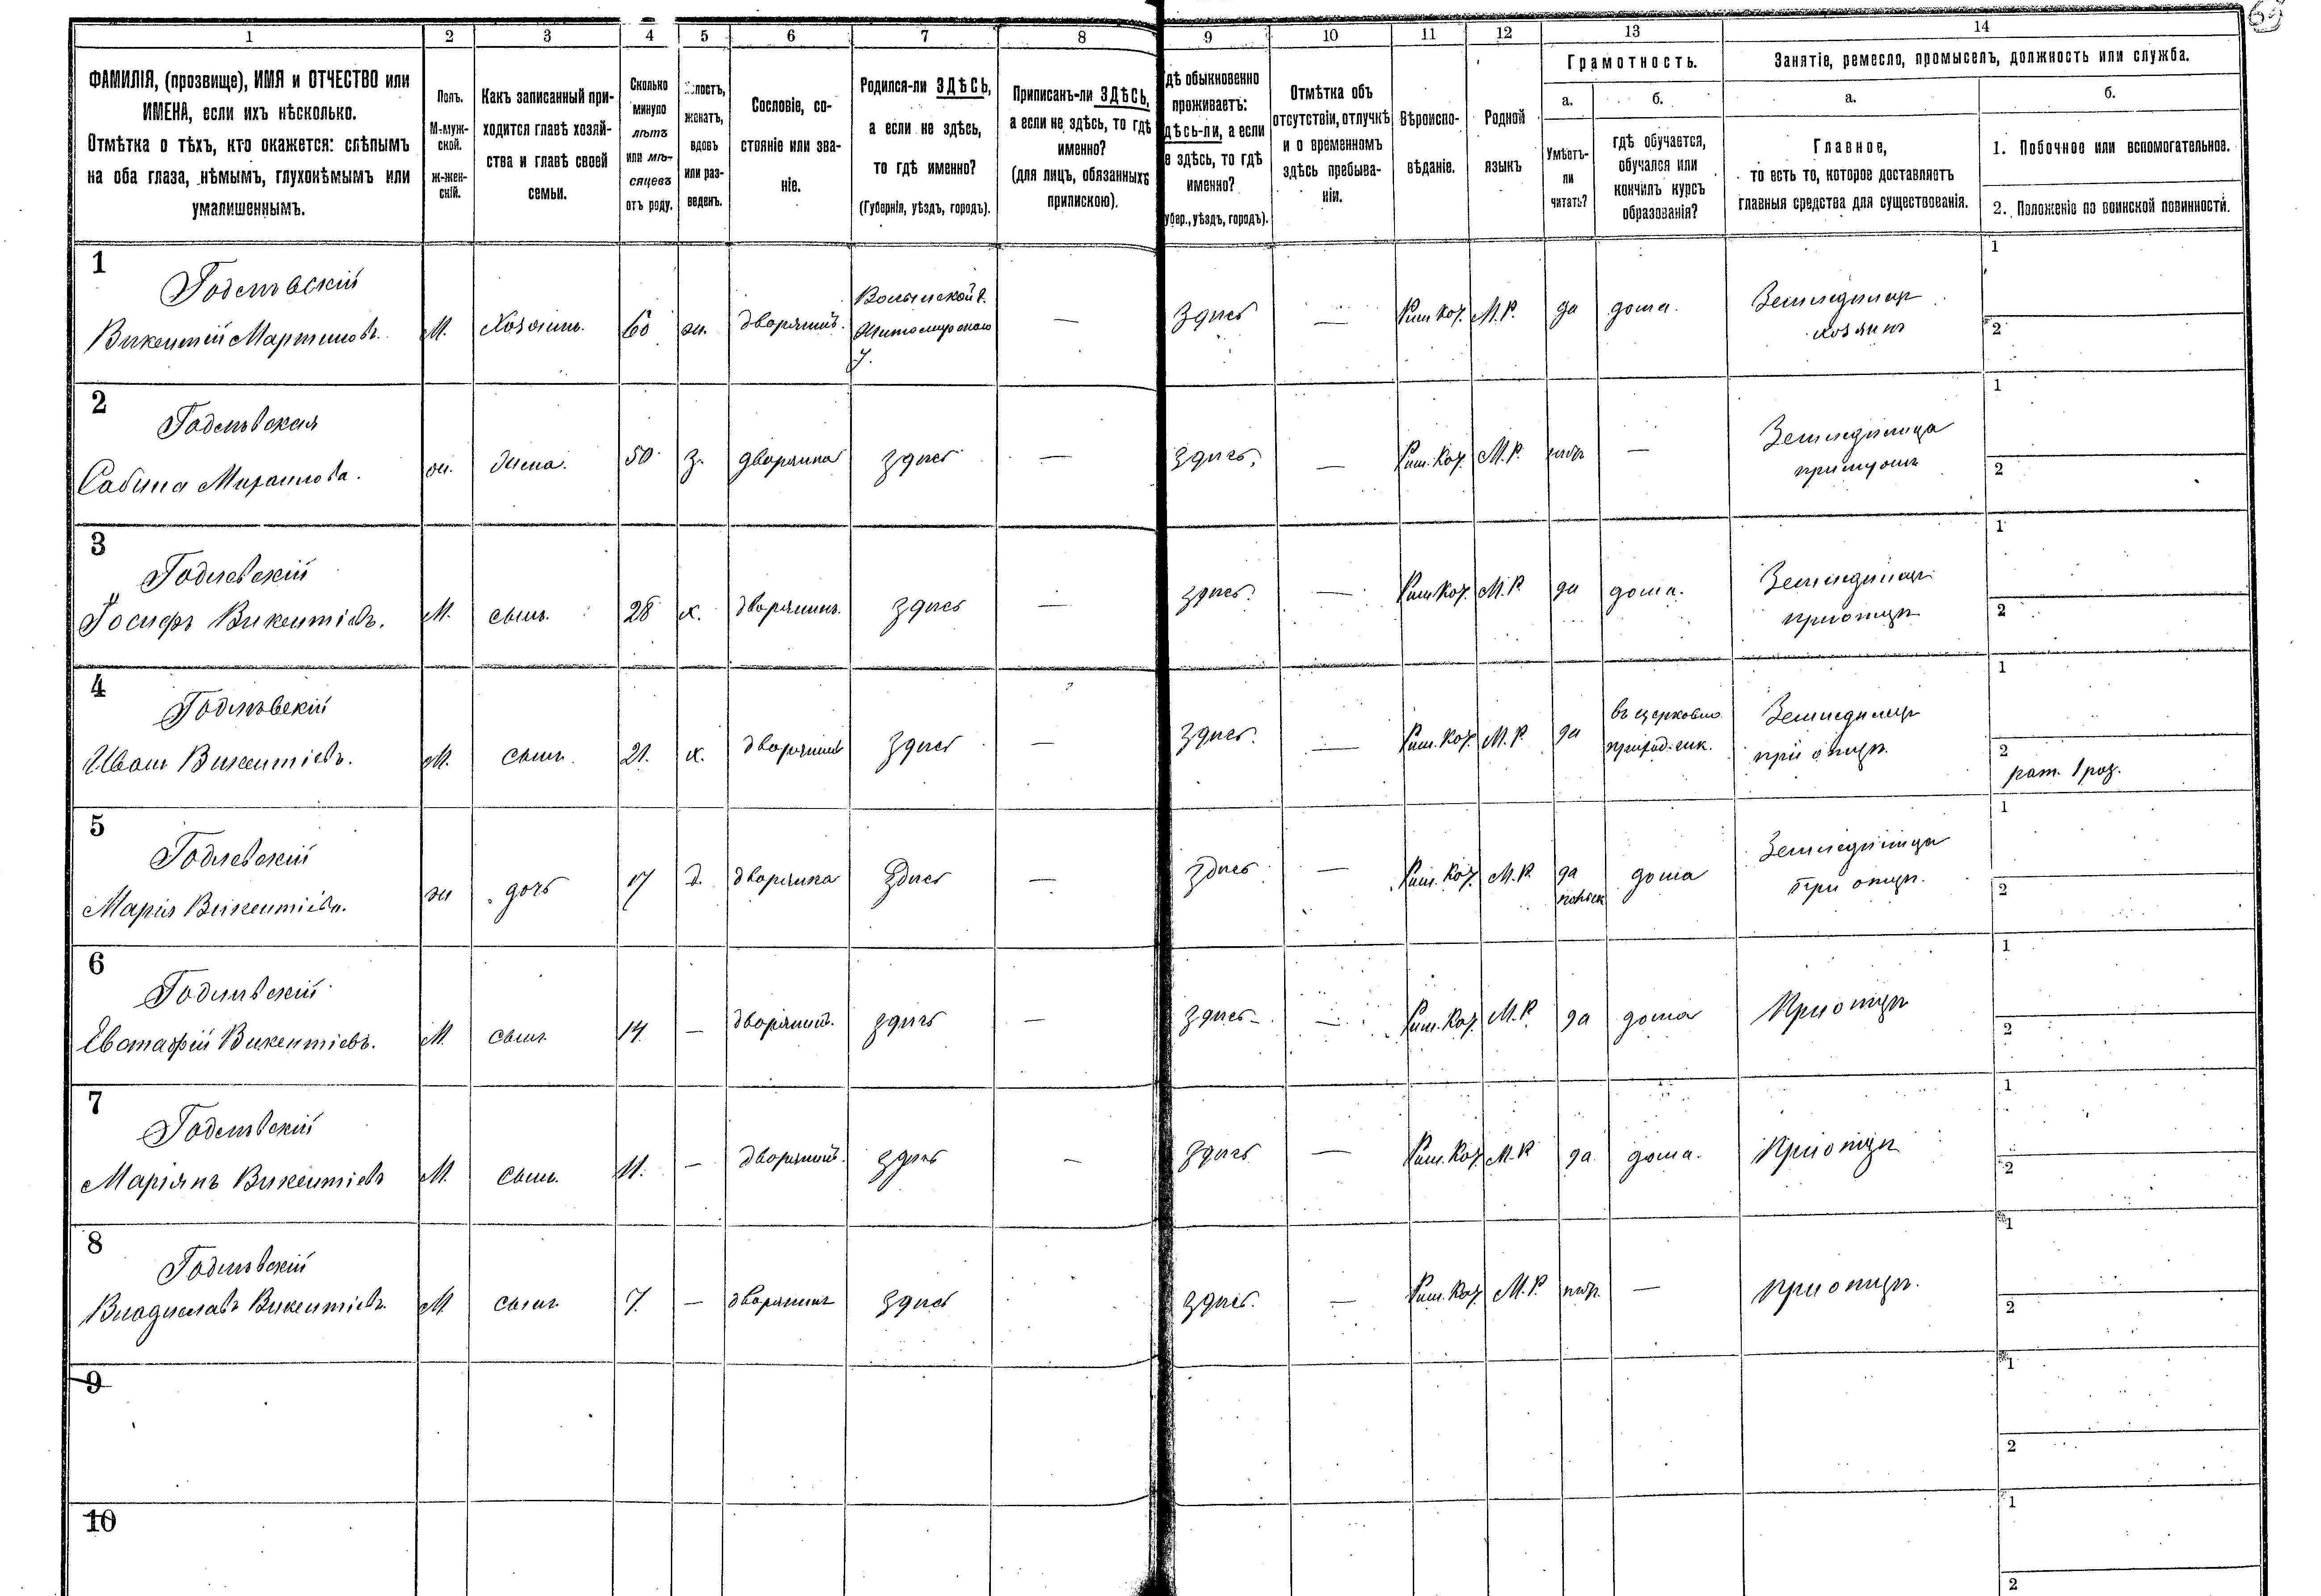 69
1 2 3 4 5 6 7 8 9 10 11 12 13 14
ФАМИЛІЯ, (прозвище), ИМЯ и ОТЧЕСТВО или
ИМЕНА, если ихъ нѣсколько.
Отмѣтка о тѣхъ, кто окажется: слѣпымъ
на оба глаза, нѣмымъ, глухонѣмымъ или
умалишеннымъ.
Полъ.
М-муж-
ской.
ж-жен-
скій.
Какъ записанный при-
ходится главѣ хозяй-
ства и главѣ своей
семьи.
Сколько
минуло
лѣтъ
или мѣ-
сяцевъ
отъ роду.
лостъ,
женатъ,
вдовъ
или раз-
веденъ.
Сословіе, со-
стояніе или зва-
ніе.
Родился-ли ЗДѢСЬ,
а если не здѣсь,
то гдѣ именно?
(Губернія, уѣздъ, городъ).
Приписанъ-ли ЗДѢСЬ,
а если не здѣсь, то гдѣ
именно?
(для лицъ, обязанныхъ
припискою).
дѣ обыкновенно
проживаетъ:
дѣсь-ли, а если
е здѣсь, то гдѣ
именно?
убер., уѣздъ, городъ).
Отмѣтка объ
отсутствіи, отлучкѣ
и о временномъ
здѣсь пребыва-
ніи.
Вѣроиспо-
вѣданіе.
Родной
языкъ
Грамотность.
а.
Умѣетъ-
ли
читать?
б.
гдѣ обучается,
обучался или
кончилъ курсъ
образованія?
Занятіе, ремесло, промыселъ, должность или служба.
а.
Главное,
то есть то, которое доставляетъ
главныя средства для существованія.
б.
1. Побочное или вспомогательное.
2. Положеніе по воинской повинности.
1
Годлѣвскій
Викентій Мартиновъ.
М.
Хозяинъ.
60
ж.
дворянинъ.
Волынской г.
Житомирскаго
у.
—
Здѣсь
—
Рим. Кат.
М. Р.
да
дома.
Земледѣлецъ
хозяинъ
1
2
2
Годлѣвская
Сабина Михаилова.
ж.
жена.
50
з.
дворянка
здѣсь
—
здѣсь.
—
Рим. Кат.
М. Р.
нѣтъ
—
Земледѣлица
при мужѣ
1
2
3
Годлевскій
Іосифъ Викентіевъ.
М.
сынъ.
28
х.
дворянинъ.
здѣсь
—
здѣсь.
—
Рим. Кат.
М. Р.
да
дома.
Земледѣлецъ
при отцѣ
1
2
4
Годлѣвскій
Иванъ Викентіевъ.
М.
сынъ.
21.
х.
дворянинъ
здѣсь
—
здѣсь.
—
Рим. Кат.
М. Р.
да
въ церковно
приход.
Земледѣлецъ
при отцѣ.
1
2
рат. 1 раз.
5
Годлевскій
Марія Викентіева.
ж
дочь
17
д.
дворянка
Здѣсь
—
здѣсь
—
Рим. Кат.
М. Р.
да
польск
дома
Земледѣлица
при отцѣ.
1
2
6
Годлѣвскій
Евстафій Викентіевъ.
М.
сынъ
14.
—
дворянинъ.
здѣсь
—
здѣсь
—
Рим. Кат.
М. Р.
да
дома
При отцѣ
1
2
7
Годлѣвскій
Маріянъ Викентіевъ
М.
сынъ.
11.
—
дворянинъ.
здѣсь
—
здѣсь
—
Рим. Кат.
М. Р.
да
дома.
При отцѣ
1
2
8
Годлѣвскій
Владиславъ Викентіевъ.
М
сынъ
7.
—
дворянинъ
здѣсь
здѣсь.
—
Рим. Кат.
М. Р.
нѣт.
—
при отцѣ.
1
2
9
1
2
10
1
2